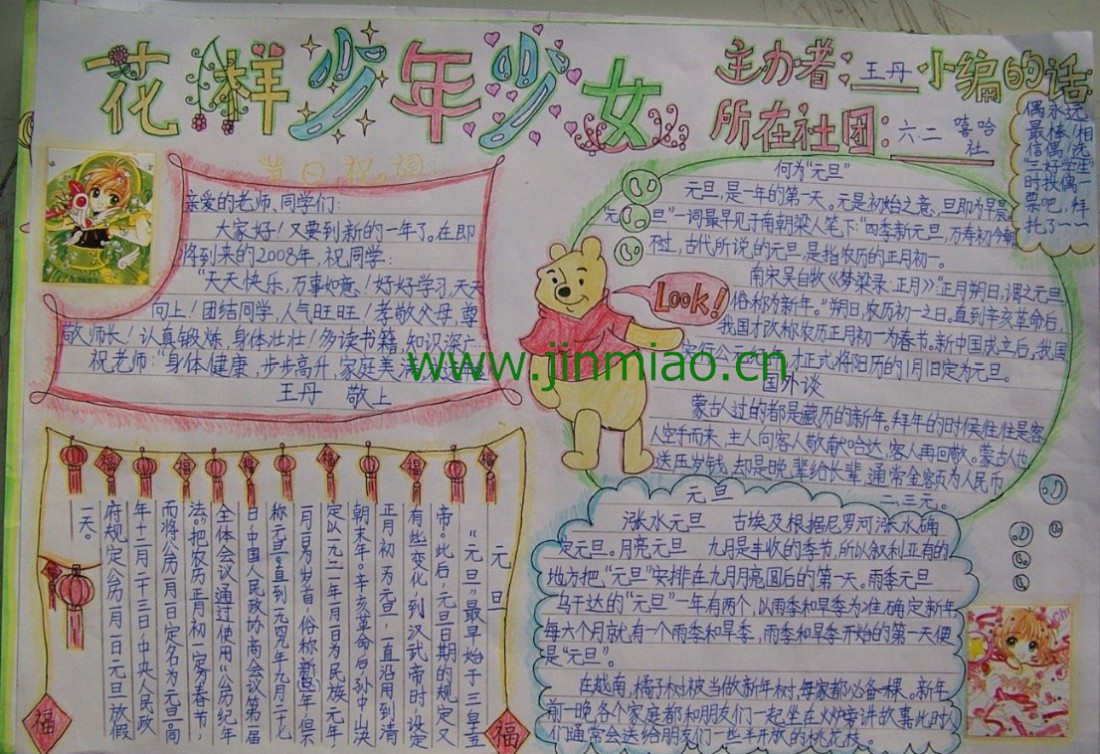 花样少年少女
主办者：王丹
所在社团：六二 嘻哈社
小编的话
偶永远
最棒！相
信偶！选
"三好学生"
时投偶一
票吧，拜
托了~~
节日祝词
亲爱的老师、同学们：
大家好！又要到新的一年了。在即
将到来的2008年，祝同学：
"天天快乐，万事如意！好好学习，天天
向上！团结同学，人气旺旺！孝敬父母，尊
敬师长！认真锻炼，身体壮壮！多读书籍，知识深广
祝老师："身体健康，步步高升，家庭美
王丹 敬上
www.jinmiao.cn
何为"元旦"
元旦，是一年的第一天。元是初始之意，旦即为早晨
"元旦"一词最早见于南朝梁人笔下："四季新元旦，万寿初今朝
不过，古代所说的元旦，是指农历的正月初一。
南宋吴自牧《梦梁录·正月》："正月朔日，谓之元旦
俗称为新年。"朔日，农历初一之日。直到辛亥革命后，
我国才改称农历正月初一为春节。新中国成立后，我国
才正式将阳历的1月1日定为元旦。
国外谈
蒙古人过的都是藏历的新年。拜年的时候往往是客
人空手而来，主人向客人敬献哈达，客人再回敬。蒙古人也
送压岁钱，却是晚辈给长辈，通常金额页为人民币
二、三元。
Look!
元旦
"元旦"最早始于三皇五
帝。此后，元旦日期的规定又
有些变化，到汉武帝时设定
正月初一为元旦，一直沿用到清
朝末年。辛亥革命后，孙中山决
定以一九一二年一月一日为民族元年，
一月一日为岁首，俗称新年，但不
称元旦。直到一九四九年九月二十七
日，中国人民政协商会议第一届
全体会议，通过使用"公历纪年
法"，把农历正月初一定为春节，
而将公历一月一日定名为元旦。一高
年十二月二十三日，中央人民政
府规定公历一月一日元旦放假
一天。
福
福
元旦
涨水元旦 古埃及根据尼罗河涨水确
定元旦。月亮元旦 九月是丰收的季节，所以叙利亚有的
地方把"元旦"安排在九月月亮圆后的第一天。雨季元旦
乌干达的"元旦"一年有两个，以雨季和旱季为准确定新年
每六个月就有一个雨季和旱季，雨季和旱季开始的第一天便
是"元旦"。
在越南，橘子树被当做新年树，每家都必备一棵。新年
前一晚，各个家庭都和朋友们一起坐在火炉旁讲故事，此时人
们通常会送给朋友们一些半开放的桃花枝。